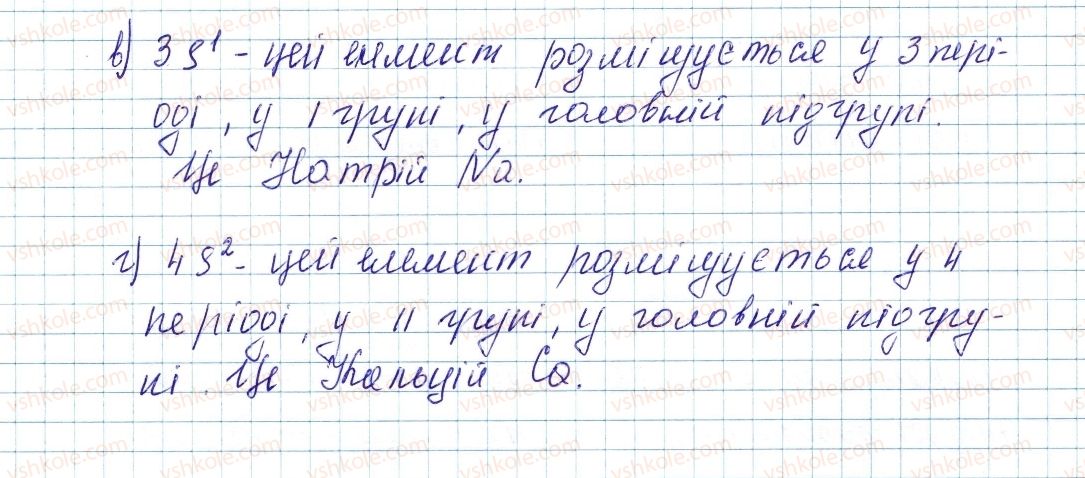 в) 3s¹ - цей елемент розміщується у 3 пері-
оді, у I групі, у головній підгрупі.
Це Натрій Na.
г) 4s² - цей елемент розміщується у 4
періоді, у II групі, у головній підгру-
пі. Це Кальцій Ca.